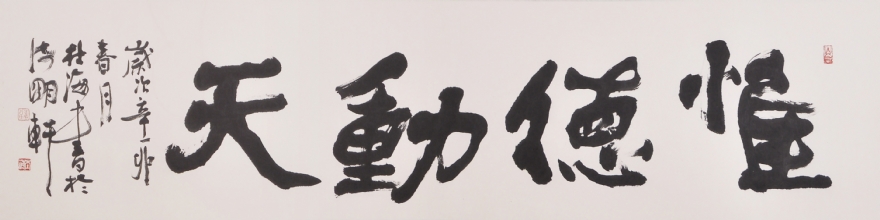 惟德動天
歲次辛卯
春月
杜海書於
明軒